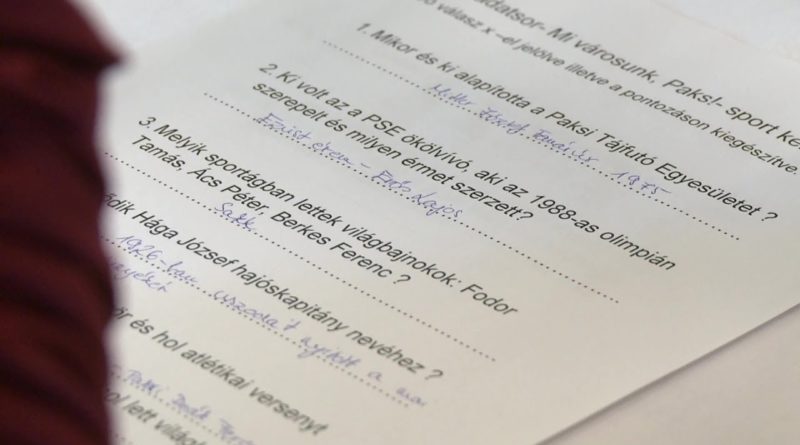 datsor- Mi városunk, Paks!- sport ké
ó válasz x –el jelölve illetve a pontozáson kiegészítve.
1. Mikor és ki alapította a Paksi Tájfutó Egyesületet ?
József tanár úr 1975
2. Ki volt az a PSE ökölvívó, aki az 1988-as olimpián
szerepelt és milyen érmet szerzett?
Ezüst érem - Erdő Lajos
3. Melyik sportágban lettek világbajnokok: Fodor
Tamás, Ács Péter Berkes Ferenc ?
Sakk
ődik Hága József hajóskapitány nevéhez ?
1926-ban uszodát nyitott a mai
ör és hol atlétikai versenyt
ol lett világ